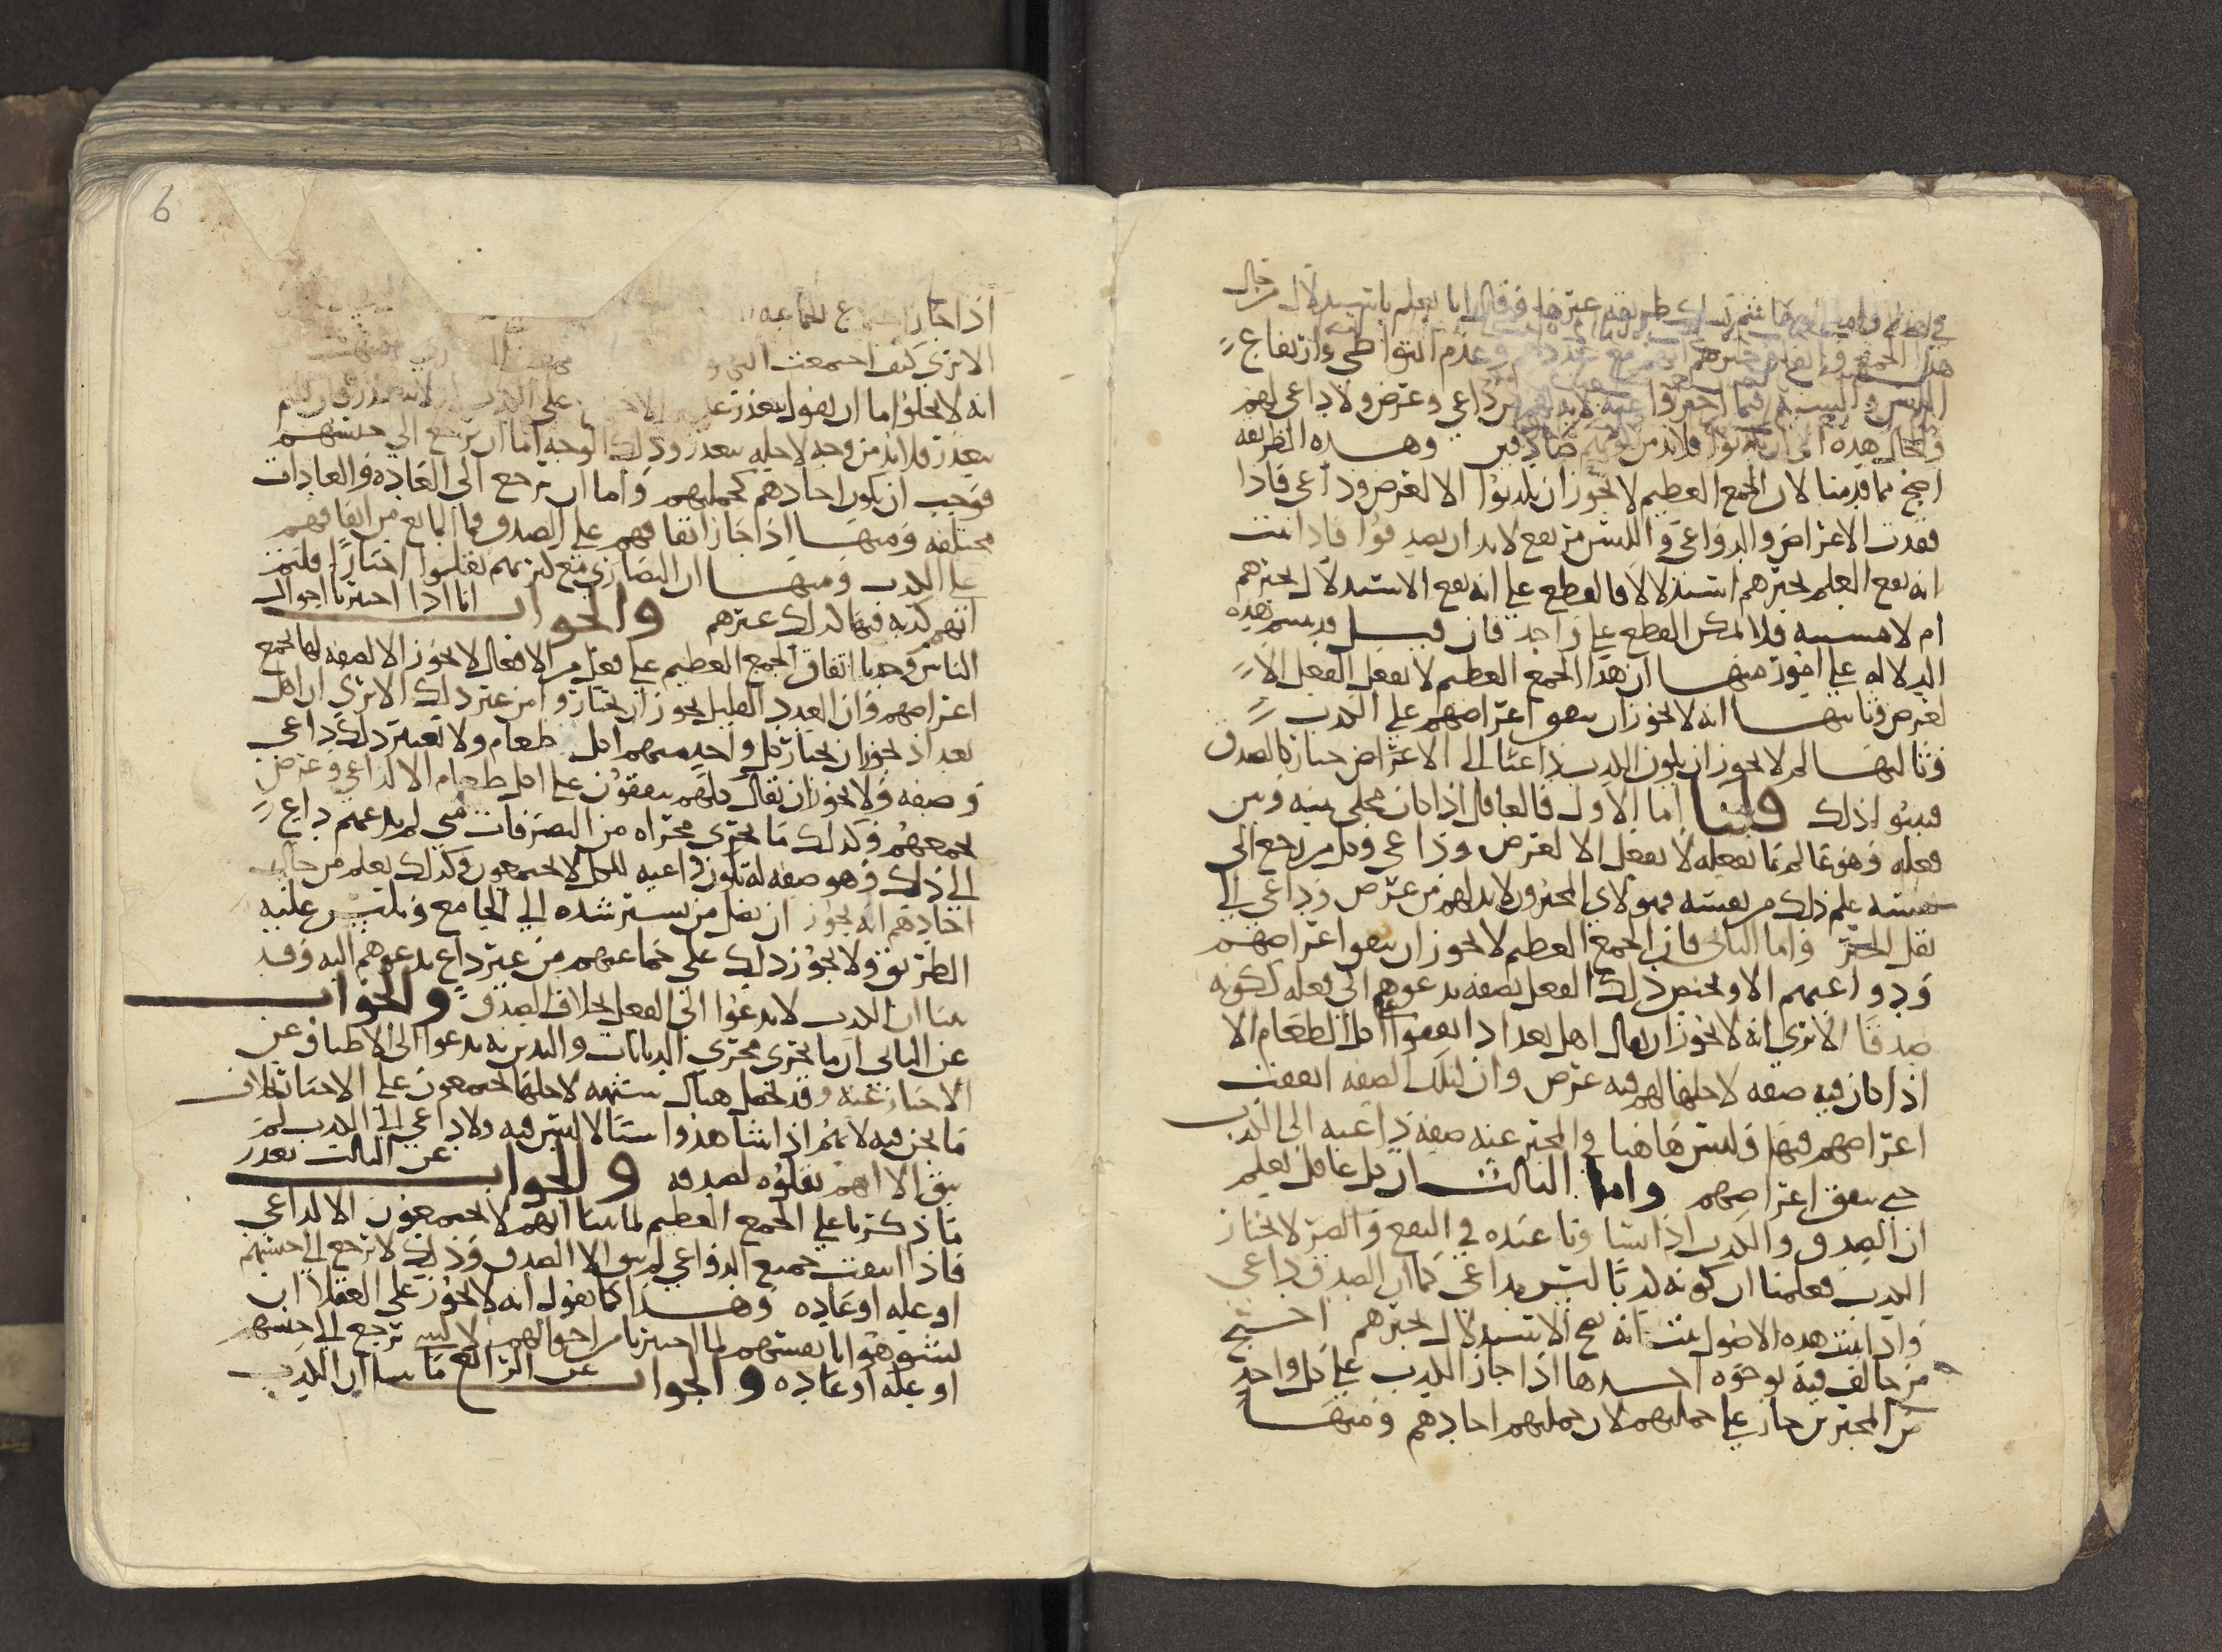 هذا الجمع
وعدم التواطي وارتفاع
اللبس
لا بد لهم من داعي وغرض ولا داعي لهم
والحال هذه الى ان يكذبوا فلا بد من كونهم صادقين وهذه الطريقه
اصح مما قدمنا لان الجمع العظيم لا يجوز ان يكذبوا الا لغرض وداعي فاذا
فقدت الاغراض والدواعي واللبس مرتفع لا بد ان يصدقوا فاذا ثبت
انه يقع العلم بخبرهم استدلالا فالقطع على انه يقع الاستدلال بخبرهم
ام لا فلا يمكن القطع على واحد فان قيل قد بنيتم هذه
الدلاله على امور منها ان هذا الجمع العظيم لا يفعل الفعل الا
لغرض وثانيها انه لا يجوز ان يتفق اغراضهم على الكذب
وثالثها لم لا يجوز ان يكون الكذب داعيا الى الاغراض حسب كالصدق
فبينوا ذلك قلنا اما الاول فالعاقل اذا كان مخلى بينه وبين
فعله وهو عالم بما يفعله لا يفعل الا لغرض وداعي وكل من رجع الى
نفسه علم ذلك من نفسه فهولاي المخبرون لا بد لهم من غرض وداعي الى
نقل الخبر واما الثاني فان الجمع العظيم لا يجوز ان يتفق اغراضهم
ودواعيهم الا ويختص ذلك الفعل بصفه يدعوهم الى فعله ككونه
صدقا الا ترى انه لا يجوز ان يقال اهل بغداد اتفقوا على اكل الطعام الا
اذا كان فيه صفه لاجلها لهم فيه غرض وان لتلك الصفه اتفقت
اغراضهم فيها وليس هاهنا في المخبر عنه صفه داعيه الى الكذب
حتى يتفق اغراضهم واما الثالث ان كل عاقل يعلم
ان الصدق والكذب اذا تساويا عنده في النفع والضر لا يختار
الكذب فعلمنا ان كونه كذبا ليس بداعي كما ان الصدق داعي
واذا ثبت هذه الاصول ثبت انه يصح الاستدلال بخبرهم احتج
من خالف فيه بوجوه احدها اذا جاز الكذب على كل واحد
من المخبرين جاز على جملتهم لان جملتهم احادهم ومنها
6
اذا جاز اجتماع الجماعه
الا ترى كيف اجتمعت
انه لا يخلوا اما ان يقول يتعذر على الكذب او لا يتعذر فان قلتم
يتعذر فلا بد من وجه لاجله يتعذر وذلك الوجه اما ان يرجع الى جنسهم
فوجب ان يكون احادهم كجملتهم واما ان يرجع الى العاده والعادات
مختلفه ومنها اذا جاز اتفاقهم على الصدق فما المانع من اتفاقهم
على الكذب ومنها ان النصارى مع كثرتهم نقلوا اخبارا وقلتم
انهم كذبه فيها كذلك غيرهم والجواب انا اذا اختبرنا احوال
الناس وجدنا اتفاق الجمع العظيم على فعل من الافعال لا يجوز الا لصفه لها تجمع
اغراضهم وان العدد القليل يجوز ان يختاروا من غير ذلك الا ترى ان اهل
بغداد يجوز ان يختار كل واحد منهم اكل طعام ولا نعتبر ذلك داعي
وصفه ولا يجوز ان يقال كلهم يتفقون على اكل طعام الا لداعي وغرض
يجمعهم وكذلك ما يجري مجراه من التصرفات متى لم يدعهم داع
الى ذلك وهو صفه له تكون داعيه للكل لا يجتمعون وكذلك نعلم من حال
احادهم انه يجوز ان يضل من يسترشده الى الجامع ويلبس عليه
الطريق ولا يجوز ذلك على جماعتهم من غير داع يدعوهم اليه وقد
بينا ان الكذب لا يدعوا الى الفعل بخلاف الصدق والجواب
عن الثاني ان ما يجري مجرى الديانات والتدين به يدعوا الى الاطباق عن
الاخبار عنه وقد يحصل هناك شبهه لاجلها يجتمعون على الاخبار بخلاف
ما نحن فيه لانهم اذا شاهدوا شيا لا لبس فيه ولا داعي الى الكذب لم
يبق الا انهم نقلوه لصدقه والجواب عن الثالث تعذر
ما ذكرنا على الجمع العظيم لما بينا انهم لا يجتمعون الا لداعي
فاذا انتفت جميع الدواعي لم يبق الا الصدق وذلك لا يرجع الى جنسهم
او عله او عاده وهذا كما نقول انه لا يجوز على العقلا ان
يشوهوا بانفسهم لما اختبرنا من احوالهم لا ترجع الى جنسهم
او عله او عاده والجواب عن الرابع ما بينا ان الكذب